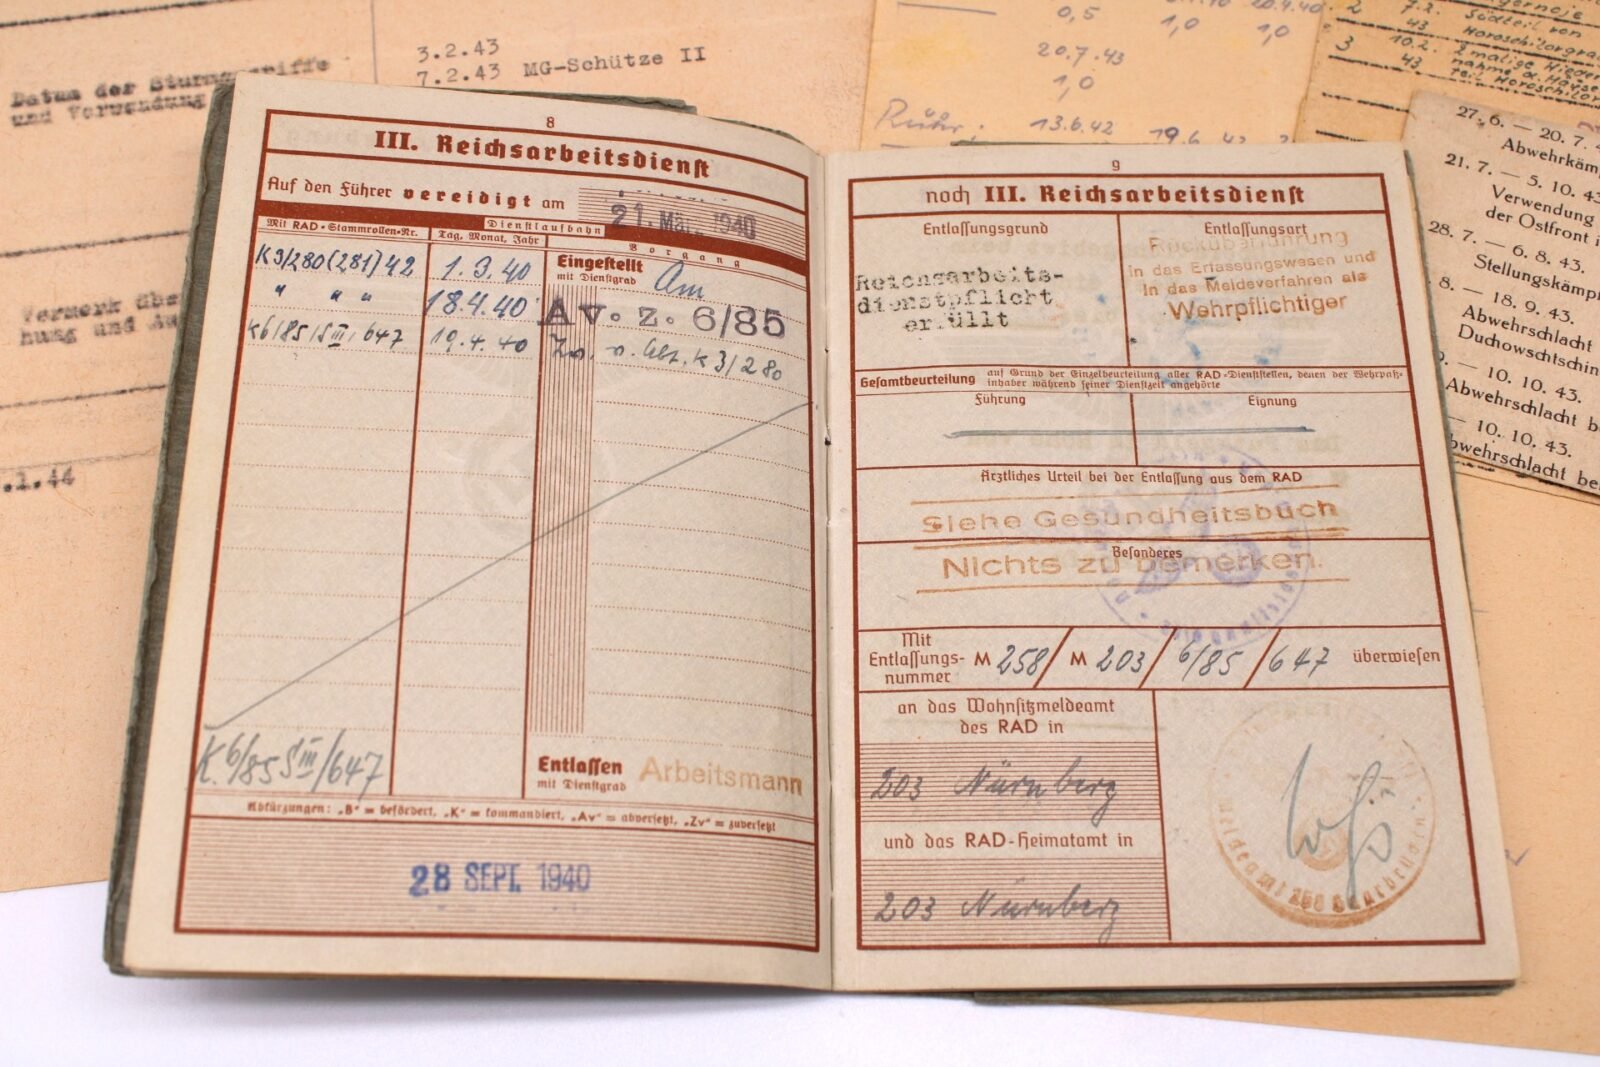 Datum der
und Verwendung
3.2.43
7.2.43 MG-Schütze II
0,5 1,0 1,0
20.7.43
1,0
Rühr; 13.6.42 19.6
2 7.2. Südteil von
43
3 10.2. 2malige
43.
27. 6. — 20. 7.
21. 7. — 5. 10. 43
Verwendung
der Ostfront
28. 7. — 6. 8. 43.
Stellungskämpf
8. — 18. 9. 43.
Abwehrschlacht
— 10. 10. 43.
Abwehrschlacht b
— 10. 10. 43.
bwehrschlacht be
.1.44
8
III. Reichsarbeitsdienst
Auf den Führer vereidigt am 21. Mär. 1940
Dienstlaufbahn
Mit RAD-Stammrollen-Nr. Tag, Monat, Jahr Vorgang
K3/280(281)42 1.3.40 Eingestellt mit Dienstgrad Am
" " " 18.4.40 Av. z. 6/85
K6/85/SIII/647 19.4.40 Zv. v. Abt. K3/280
K 6/85 SIII/647 Entlassen mit Dienstgrad Arbeitsmann
Abkürzungen: „B" = befördert, „K" = kommandiert, „Av" = abversetzt, „Zv" = zuversetzt
28 SEPT. 1940
9
noch III. Reichsarbeitsdienst
Entlassungsgrund
Reichsarbeits-
dienstpflicht
erfüllt
Entlassungsart
Rücküberführung
in das Erfassungswesen und
in das Meldeverfahren als
Wehrpflichtiger
Gesamtbeurteilung auf Grund der Einzelbeurteilung aller RAD-Dienststellen, denen der Wehrpaß-
inhaber während seiner Dienstzeit angehörte
Führung Eignung
Ärztliches Urteil bei der Entlassung aus dem RAD
Siehe Gesundheitsbuch
Besonderes
Nichts zu bemerken.
Mit
Entlassungs-
nummer
M 258/ M 203/ 6/85 /647 überwiesen
an das Wohnsitzmeldeamt
des RAD in
203 Nürnberg
und das RAD-Heimatamt in
203 Nürnberg